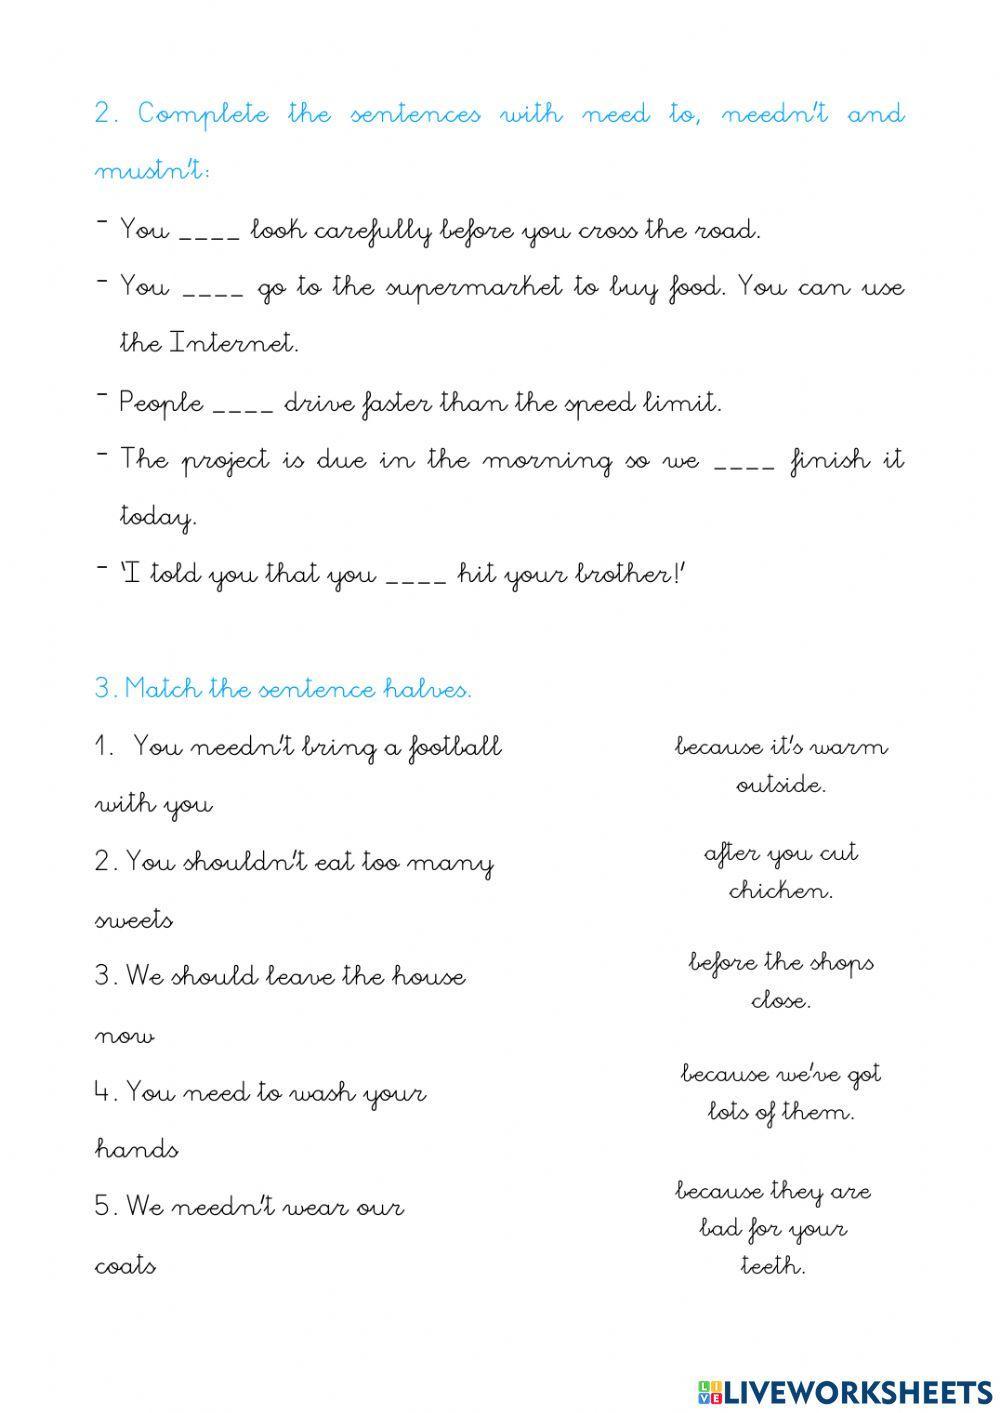 2. Complete the sentences with need to, needn't and
mustn't:
- You ____ look carefully before you cross the road.
- You ____ go to the supermarket to buy food. You can use
the Internet.
- People ____ drive faster than the speed limit.
- The project is due in the morning so we ____ finish it
today.
- 'I told you that you ____ hit your brother!'
3. Match the sentence halves.
1. You needn't bring a football
with you
2. You shouldn't eat too many
sweets
3. We should leave the house
now
4. You need to wash your
hands
5. We needn't wear our
coats
because it's warm
outside.
after you cut
chicken.
before the shops
close.
because we've got
lots of them.
because they are
bad for your
teeth.
LIVE LIVEWORKSHEETS